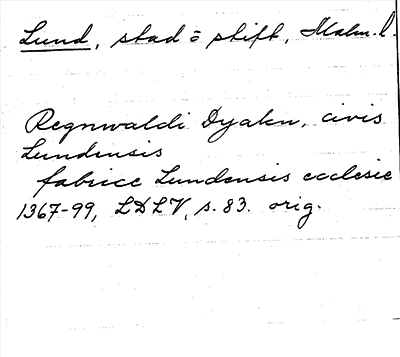 Lund, stad o stift, Malm.l.
Regnwaldi Dyakn, civis
Lundensis
fabrice Lundensis ecclesie
1367-99, LDLV, s. 83. orig.